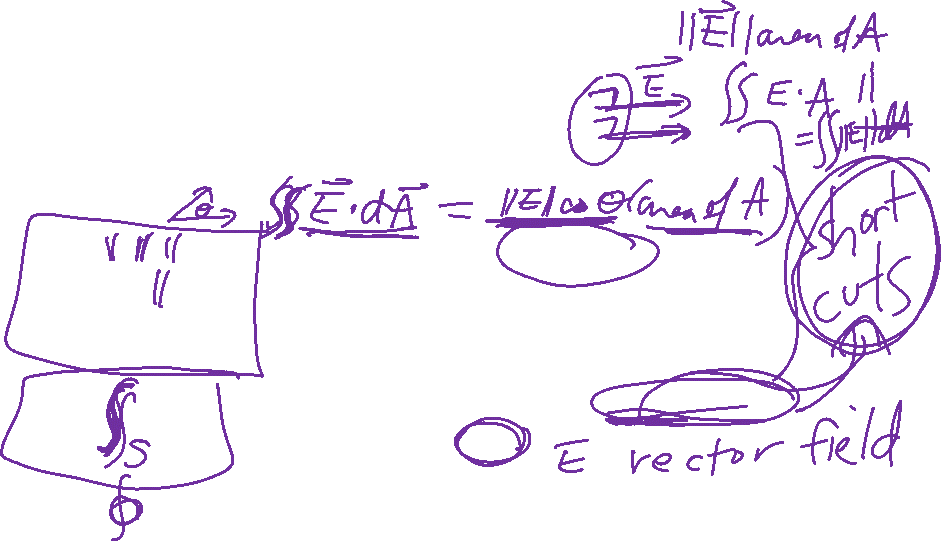 ||E⃗|| area of A
E⃗
∬ E · A
= ∬ ||E|| dA
θ
∬ E⃗ · dA⃗ = ||E|| cos θ (area of A)
short
cuts
∬_S
∮
E vector field